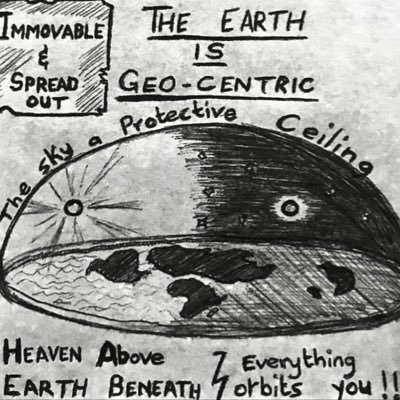 IMMOVABLE
&
SPREAD
OUT
THE EARTH
IS
GEO-CENTRIC
The sky a Protective Ceiling
HEAVEN Above
EARTH BENEATH
Everything
orbits you !!